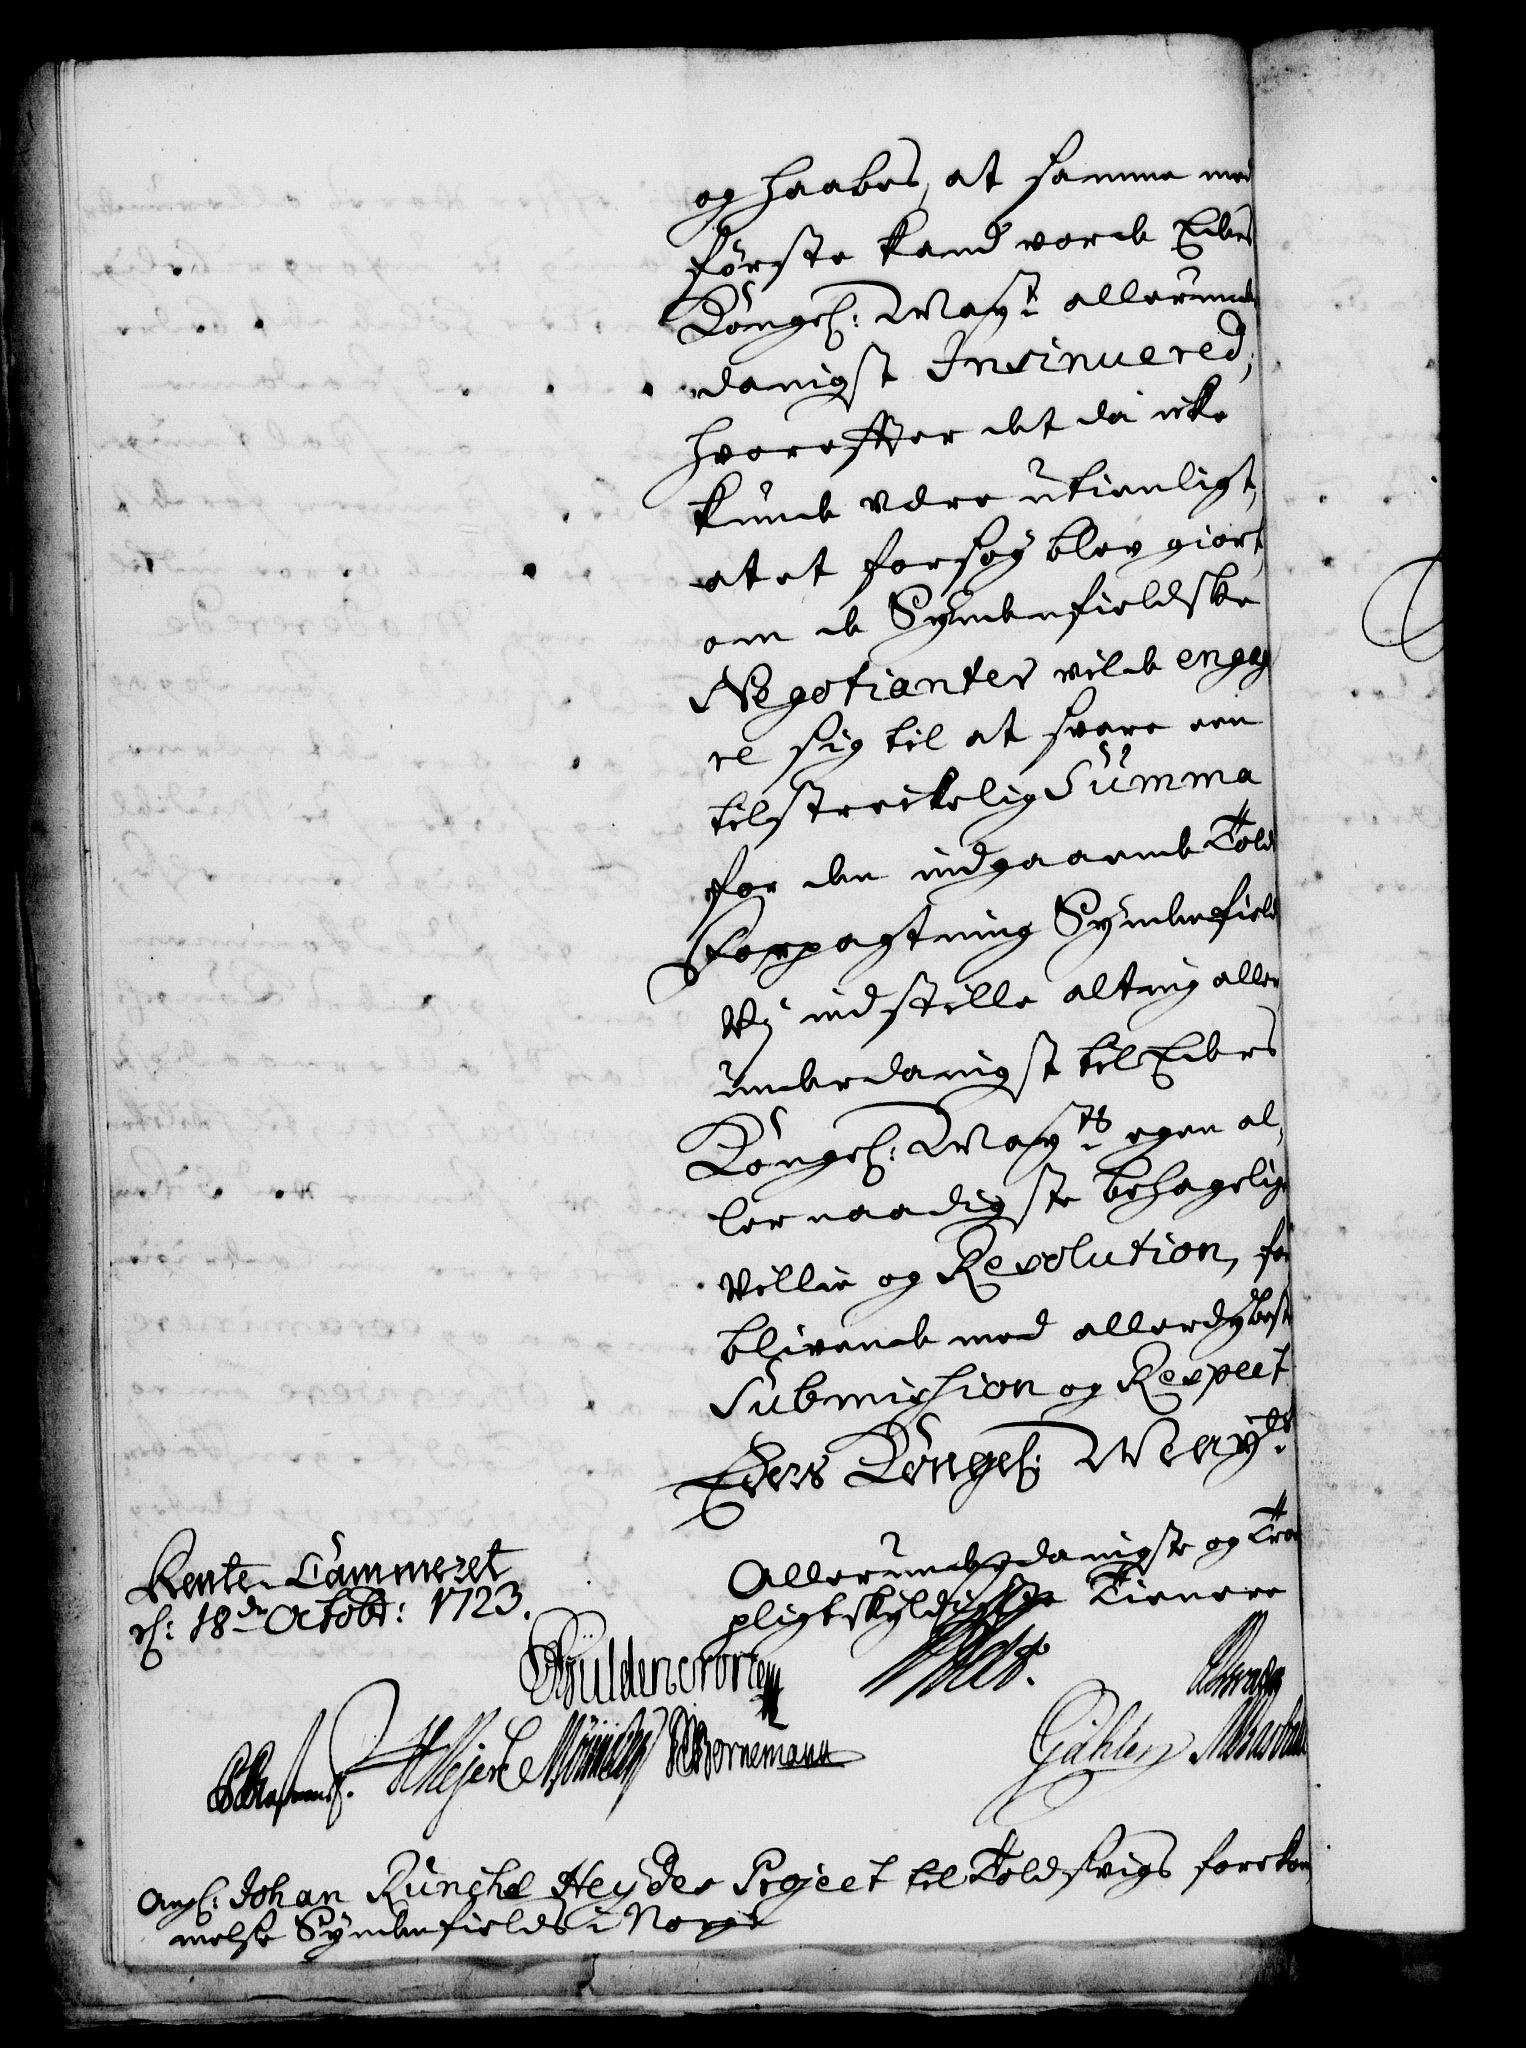 og haabes, at samme med
første kand vorde Eders
Kongel: Mayt allerunder
danigst Insinuered,
hvoreffter det da icke
kunde være utienligt,
at et forsøg blev giort,
om de Syndenfieldske
Negotianter vilde engag
re sig til at svare een
tilstreckelig Summa
for den indgaaende Told
Forpagtning Syndenfields
Vj indstille alting aller
underdanigst til Eders
Kongel: Mayts egen al,
lernaadigste behagelige
Villie og Resolution, for
blivende med allerdybeste
Submission og Respect
Eders Kongel: Mayts
Allerunderdanigste og Troe
pligtskyldigste Tienere
Rente Cammeret
d: 18de Octobr: 1723.
Güldencrone
Bornemann
Gählen
Ang: Johan Runche Heydes Project til Toldsvigs forekom
melse Syndenfields i Norge